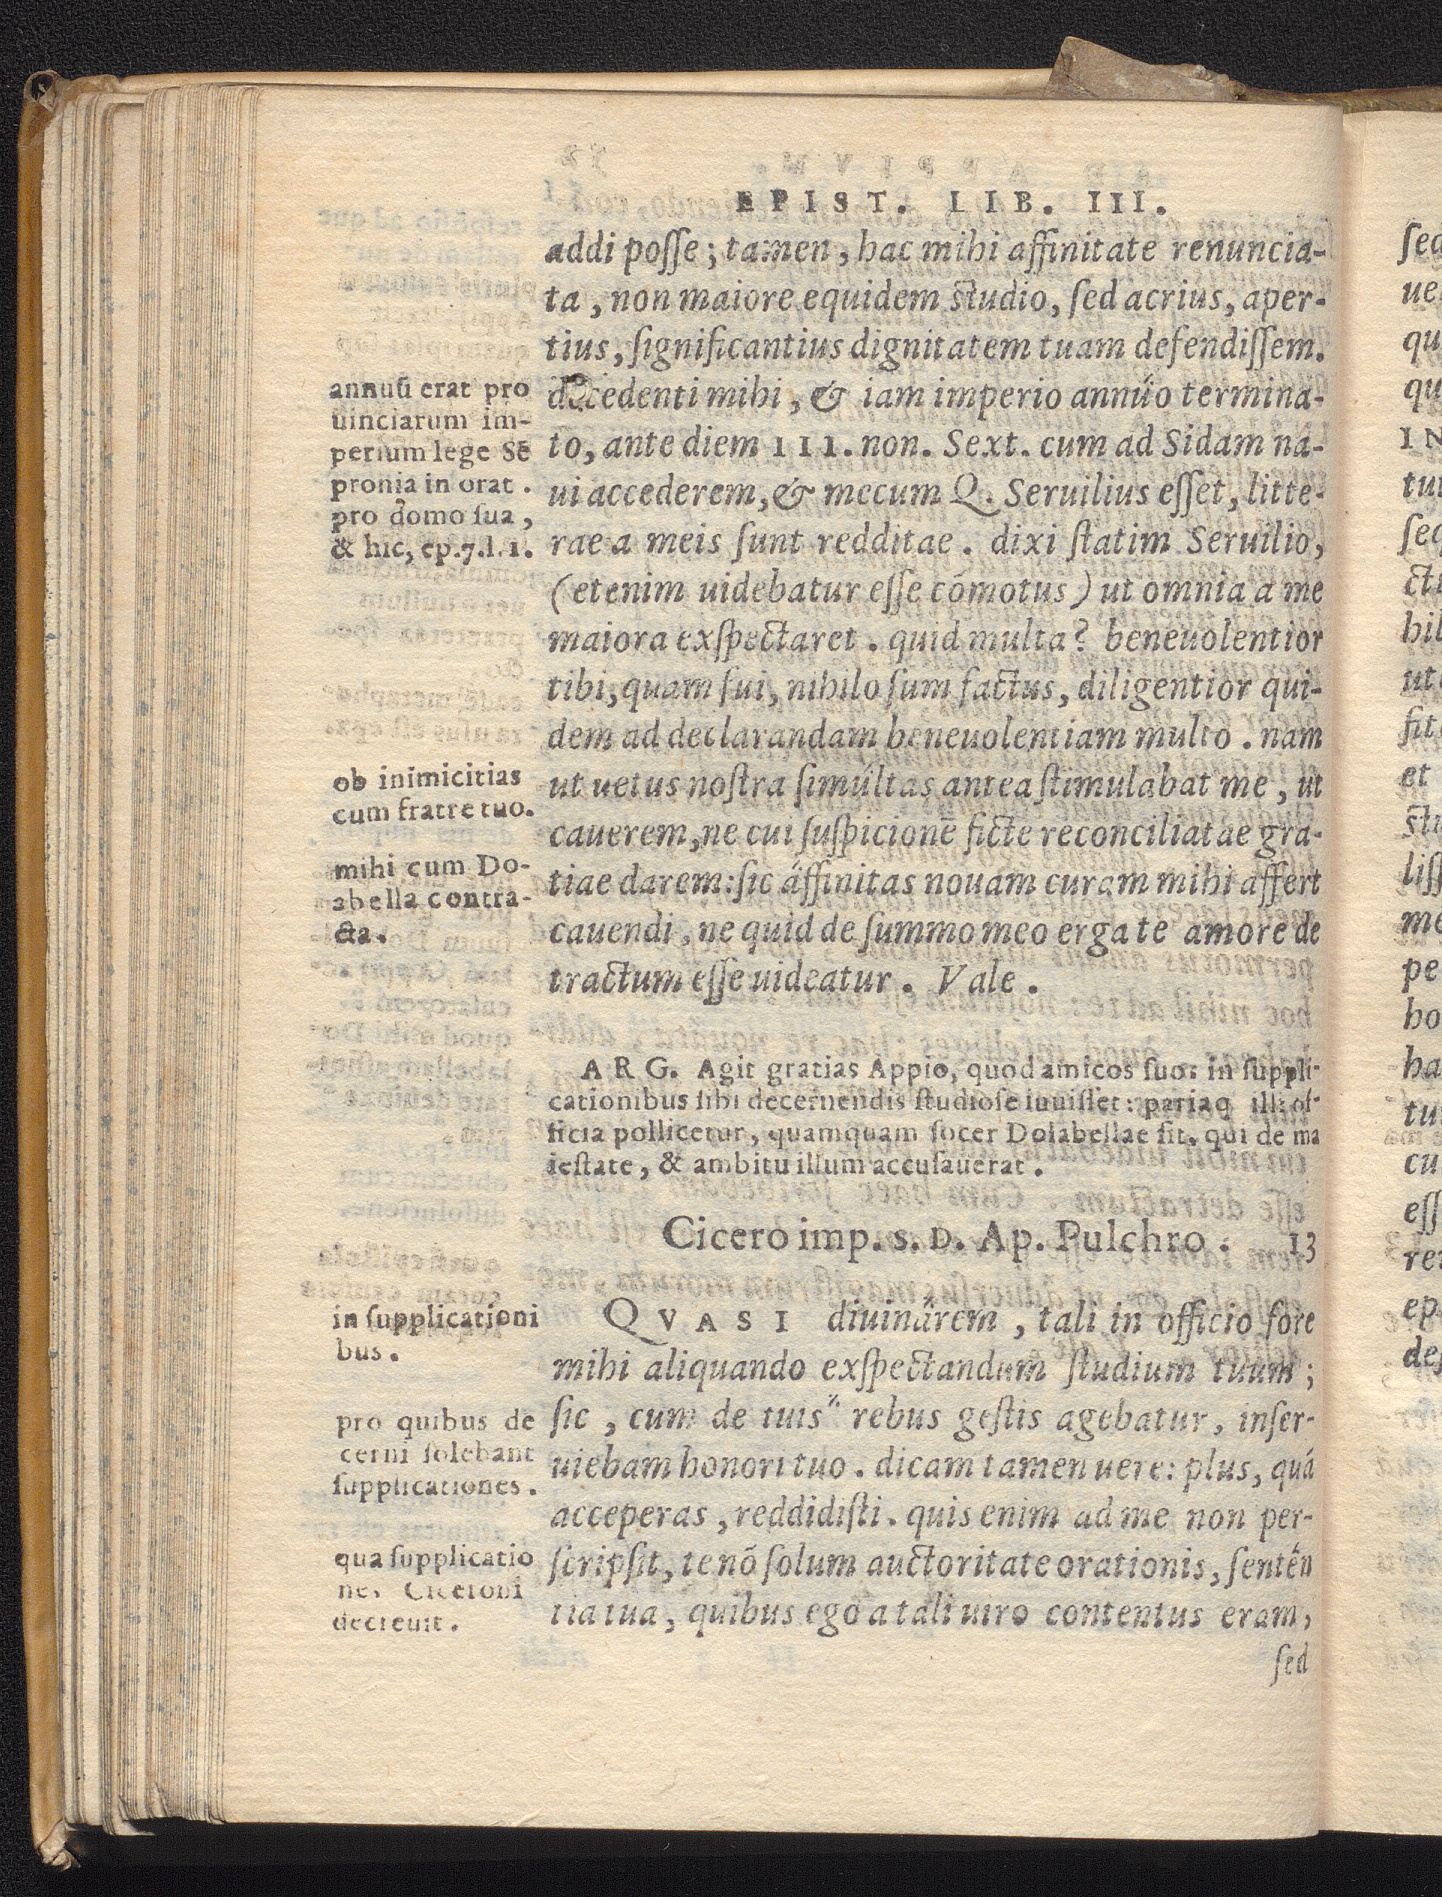 EPIST. LIB. III.
addi posse; tamen, hac mihi affinitate renuncia-
ta, non maiore equidem studio, sed acrius, aper-
tius, significantius dignitatem tuam defendissem.
decedenti mihi, & iam imperio annuo termina-
to, ante diem III. non. Sext. cum ad Sidam na-
ui accederem, & mecum Q. Seruilius esset, litte-
rae a meis sunt redditae. dixi statim Seruilio,
(etenim uidebatur esse cõmotus) ut omnia a me
maiora exspectaret. quid multa? beneuolentior
tibi, quam fui, nihilo sum factus, diligentior qui-
dem ad declarandam beneuolentiam multo. nam
ut uetus nostra simultas antea stimulabat me, ut
cauerem, ne cui suspicionẽ ficte reconciliatae gra-
tiae darem: sic affinitas nouam curam mihi affert
cauendi, ne quid de summo meo erga te amore de
tractum esse uideatur. Vale.
annuũ erat pro
uinciarum im-
perium lege Sẽ
pronia in orat.
pro domo sua,
& hic, ep.7.l.1.
ob inimicitias
cum fratre tuo.
mihi cum Do-
abella contra-
cta.
ARG. Agit gratias Appio, quod amicos suos in suppli-
cationibus sibi decernendis studiose iuuisset: pariaq illi of-
ficia pollicetur, quamquam socer Dolabellae sit, qui de ma
iestate, & ambitu illum accusauerat.
Cicero imp. s. D. Ap. Pulchro. 13
QVASI diuinarem, tali in officio fore
mihi aliquando exspectandum studium tuum;
sic, cum de tuis rebus gestis agebatur, inser-
uiebam honori tuo. dicam tamen uere: plus, quã
acceperas, reddidisti. quis enim ad me non per-
scripsit, te nõ solum auctoritate orationis, senten
tia tua, quibus ego a tali uiro contentus eram,
sed
in supplicationi
bus.
pro quibus de
cerni solebant
supplicationes.
qua supplicatio
nes Ciceroni
decreuit.
sed
ue
qu
qu
IN
tu
seq
ctu
hil
ut
sit
et
stu
liss
me
pe
bo
ha
tu
cu
ess
re
ep
de